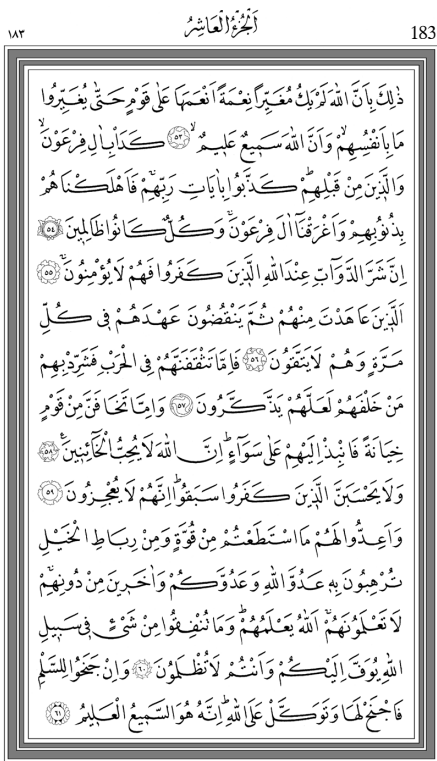 ١٨٣ اَلْجُزْءُ الْعَاشِرُ 183
ذٰلِكَ بِاَنَّ اللّٰهَ لَمْ يَكُ مُغَيِّراً نِعْمَةً اَنْعَمَهَا عَلٰى قَوْمٍ حَتّٰى يُغَيِّرُوا
مَا بِاَنْفُسِهِمْۙ وَاَنَّ اللّٰهَ سَم۪يعٌ عَل۪يمٌۙ ﴿٥٣﴾ كَدَاْبِ اٰلِ فِرْعَوْنَۙ
وَالَّذ۪ينَ مِنْ قَبْلِهِمْۜ كَذَّبُوا بِاٰيَاتِ رَبِّهِمْ فَاَهْلَكْنَاهُمْ
بِذُنُوبِهِمْ وَاَغْرَقْنَٓا اٰلَ فِرْعَوْنَۚ وَكُلٌّ كَانُوا ظَالِم۪ينَ ﴿٥٤﴾
اِنَّ شَرَّ الدَّوَٓابِّ عِنْدَ اللّٰهِ الَّذ۪ينَ كَفَرُوا فَهُمْ لَا يُؤْمِنُونَۚ ﴿٥٥﴾
اَلَّذ۪ينَ عَاهَدْتَ مِنْهُمْ ثُمَّ يَنْقُضُونَ عَهْدَهُمْ ف۪ي كُلِّ
مَرَّةٍ وَهُمْ لَا يَتَّقُونَ ﴿٥٦﴾ فَاِمَّا تَثْقَفَنَّهُمْ فِي الْحَرْبِ فَشَرِّدْ بِهِمْ
مَنْ خَلْفَهُمْ لَعَلَّهُمْ يَذَّكَّرُونَ ﴿٥٧﴾ وَاِمَّا تَخَافَنَّ مِنْ قَوْمٍ
خِيَانَةً فَانْبِذْ اِلَيْهِمْ عَلٰى سَوَٓاءٍۜ اِنَّ اللّٰهَ لَا يُحِبُّ الْخَٓائِن۪ينَ۟ ﴿٥٨﴾
وَلَا يَحْسَبَنَّ الَّذ۪ينَ كَفَرُوا سَبَقُواۜ اِنَّهُمْ لَا يُعْجِزُونَ ﴿٥٩﴾
وَاَعِدُّوا لَهُمْ مَا اسْتَطَعْتُمْ مِنْ قُوَّةٍ وَمِنْ رِبَاطِ الْخَيْلِ
تُرْهِبُونَ بِه۪ عَدُوَّ اللّٰهِ وَعَدُوَّكُمْ وَاٰخَر۪ينَ مِنْ دُونِهِمْۚ
لَا تَعْلَمُونَهُمْۚ اَللّٰهُ يَعْلَمُهُمْۜ وَمَا تُنْفِقُوا مِنْ شَيْءٍ ف۪ي سَب۪يلِ
اللّٰهِ يُوَفَّ اِلَيْكُمْ وَاَنْتُمْ لَا تُظْلَمُونَ ﴿٦٠﴾ وَاِنْ جَنَحُوا لِلسَّلْمِ
فَاجْنَحْ لَهَا وَتَوَكَّلْ عَلَى اللّٰهِۜ اِنَّهُ هُوَ السَّم۪يعُ الْعَل۪يمُ ﴿٦١﴾